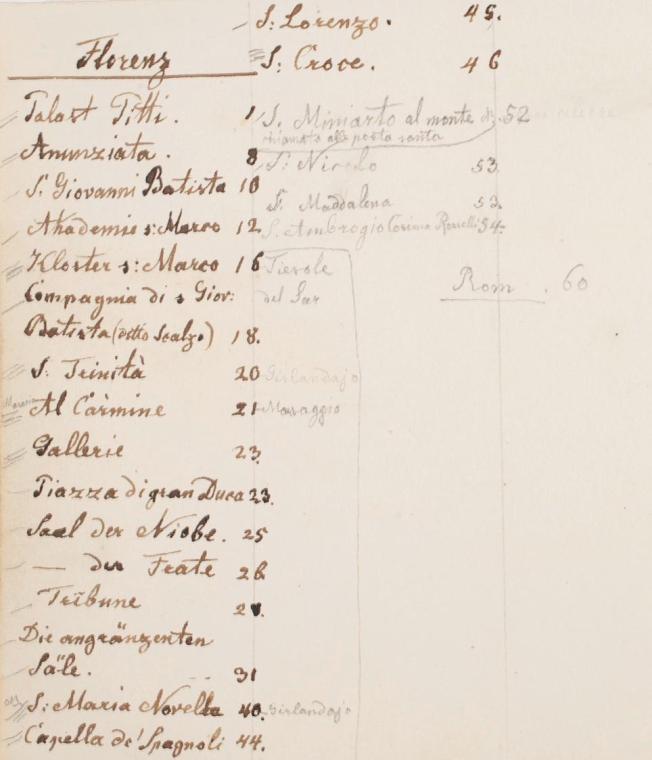 Florenz
Palast Pitti. 1
Anunziata. 8
S. Giovanni Batista 10
Akademie s: Marco 12
Kloster s: Marco 16
Compagnia di s Giov:
Batista (detto Scalzo) 18.
S. Trinità 20 Girlandajo
Al Cármine 21 Masaggio
Gallerie 23.
Piazza di gran Duca 23.
Saal der Niobe. 25
— der Frate 26
Tribune
Die angränzenten
Säle. 31
S: Maria Novella 40. Girlandajo
Capella de' Spagnoli 44.
S: Lorenzo. 45.
S: Croce. 46
S. Miniarto al monte 52
chiamato alle porta santa
S: Nicolo 53.
S. Maddalena 53.
S. Ambrogio Cosimo Rosselli 54.
Fiesole
del Sar
Rom. 60